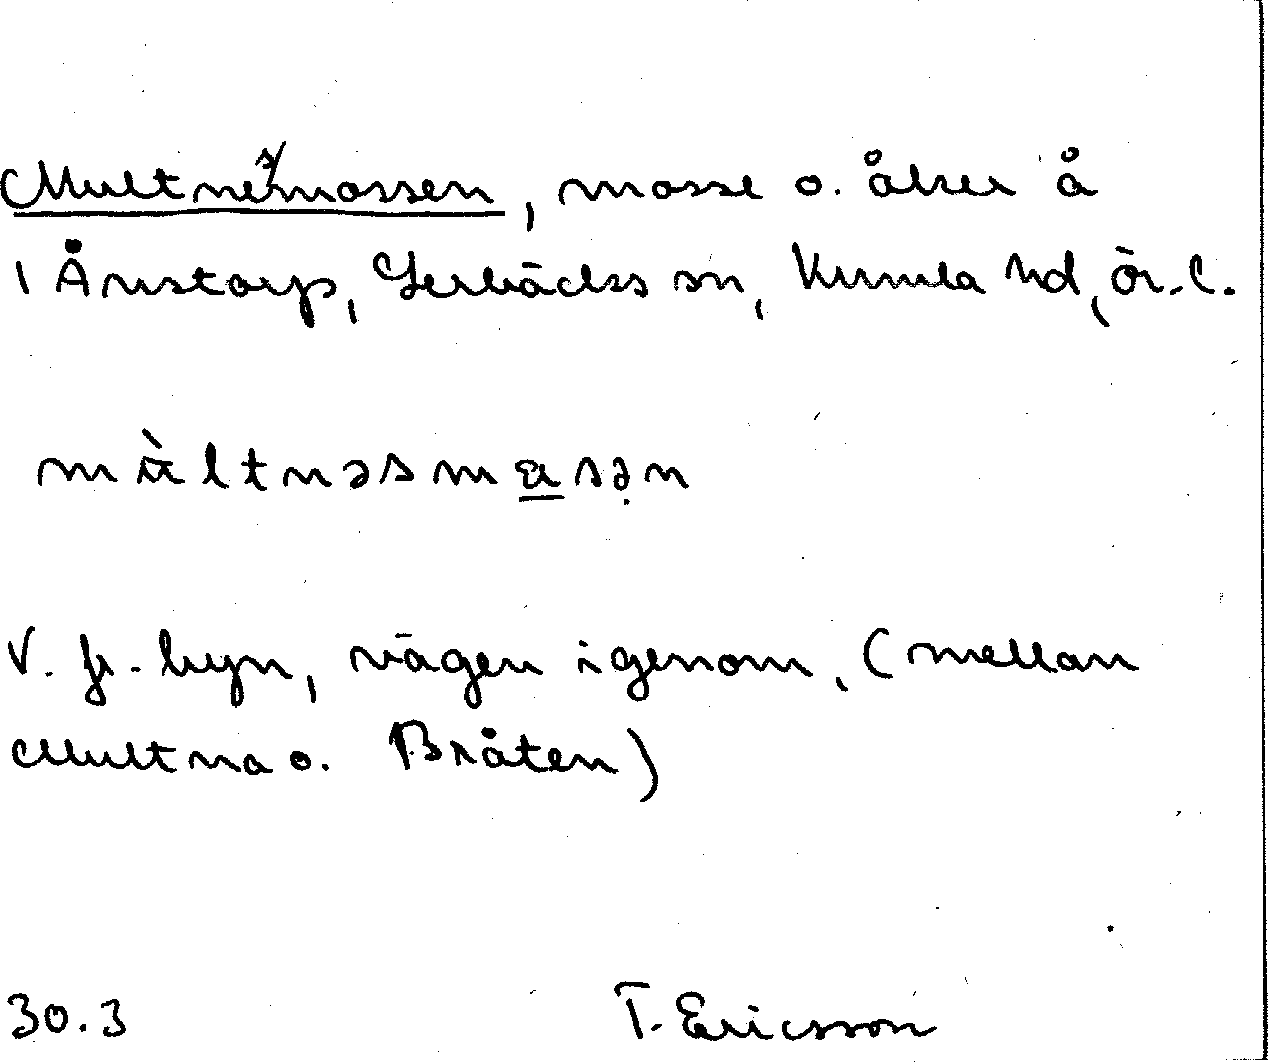 Multnesmossen, mosse o. åker å
1 Ånstorp, Lerbäcks sn, Kumla hd, Ör. l.
mùltnəsmɑsən
V. fr. byn, vägen igenom, (mellan
Multna o. Bråten)
30.3 T. Ericsson